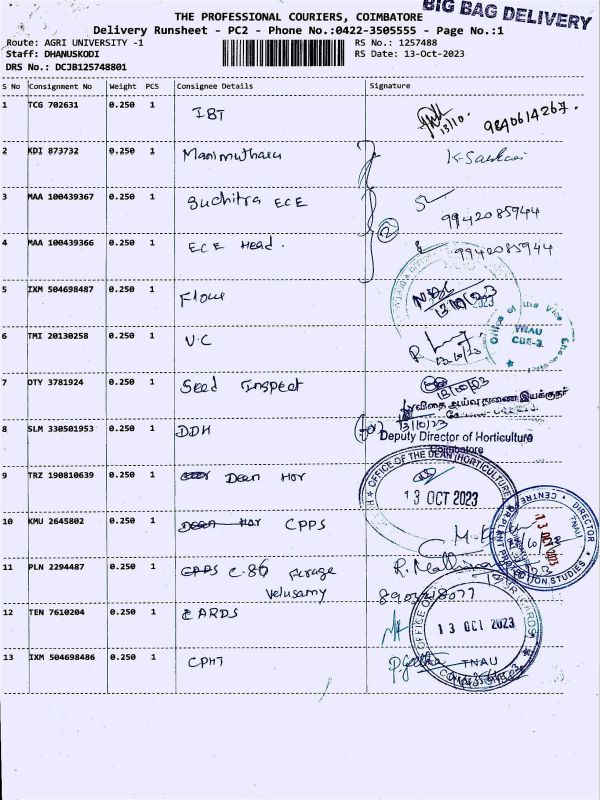 BIG BAG DELIVERY
THE PROFESSIONAL COURIERS, COIMBATORE
Delivery Runsheet - PC2 - Phone No.:0422-3505555 - Page No.:1
Route: AGRI UNIVERSITY -1
RS No.: 1257488
Staff: DHANUSKODI
RS Date: 13-Oct-2023
DRS No.: DCJB125748801
S No Consignment No Weight PCS Consignee Details Signature
1 TCG 702631 0.250 1 IBT 13/10. 9840614267.
2 KDI 873732 0.250 1
3 MAA 100439367 0.250 1 Suchitra ECE 9942085944
4 MAA 100439366 0.250 1 ECE Head. 9942085944
5 IXM 504698487 0.250 1 13/10/23
6 TMI 20130258 0.250 1 V.C 13/10/23
Office of the Vice
TNAU
CBE-3.
7 OTY 3781924 0.250 1 Seed Inspect 13/10/23
விதை ஆய்வு துணை இயக்குநர்
8 SLM 330501953 0.250 1 DDH (for) 13/10/23
Deputy Director of Horticulture
Coimbatore
9 TRZ 190810639 0.250 1 Dean Hor
OFFICE OF THE DEAN (HORTICULTURE)
13 OCT 2023
10 KMU 2645802 0.250 1 Dean Hor CPPS
DIRECTOR
CENTRE
TNAU
PLANT PROTECTION STUDIES
13 OCT 2023
11 PLN 2294487 0.250 1 CPPS C-86
Velusamy 8903248077
12 TEN 7610204 0.250 1 CARDS
OFFICE OF
13 OCT 2023
TNAU
13 IXM 504698486 0.250 1 CPHT P.Geetha